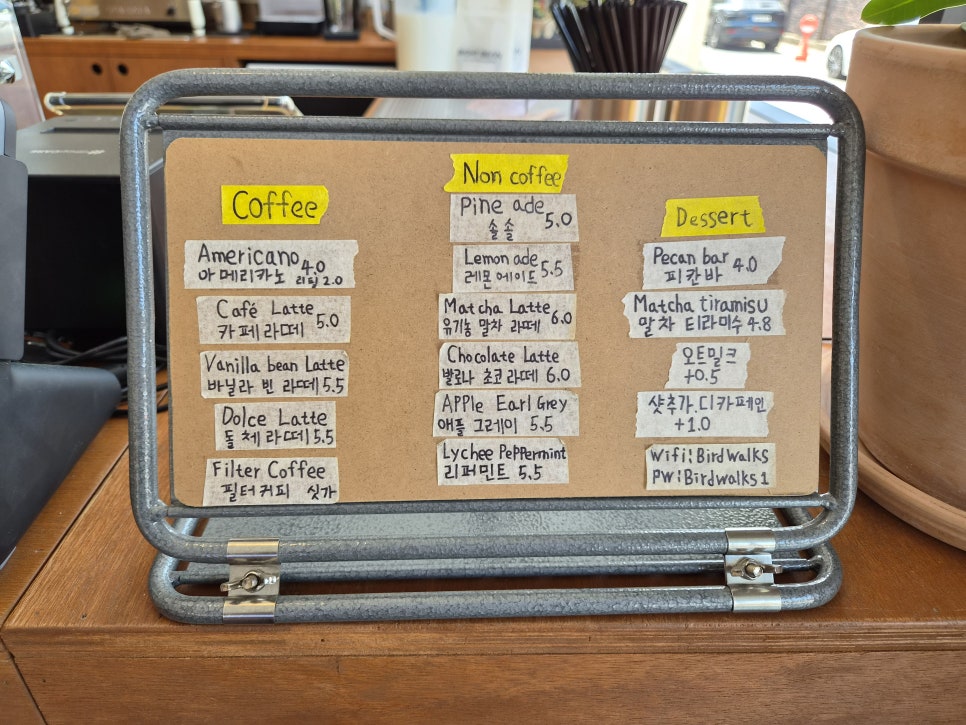 Coffee
Americano 4.0
아메리카노 리필 2.0
Café Latte
카페 라떼 5.0
Vanilla bean Latte
바닐라 빈 라떼 5.5
Dolce Latte
돌체 라떼 5.5
Filter Coffee
필터커피 싯가
Non coffee
Pine ade 5.0
솔솔
Lemon ade
레몬에이드 5.5
Matcha Latte
유기농 말차 라떼 6.0
Chocolate Latte
발로나 초코 라떼 6.0
APPle Earl Grey
애플 그레이 5.5
Lychee PePPermint
리퍼민트 5.5
Dessert
Pecan bar 4.0
피칸바
Matcha tiramisu
말차 티라미수 4.8
오트밀크
+0.5
샷추가.디카페인
+1.0
Wifi:Birdwalks
PW:Birdwalks1